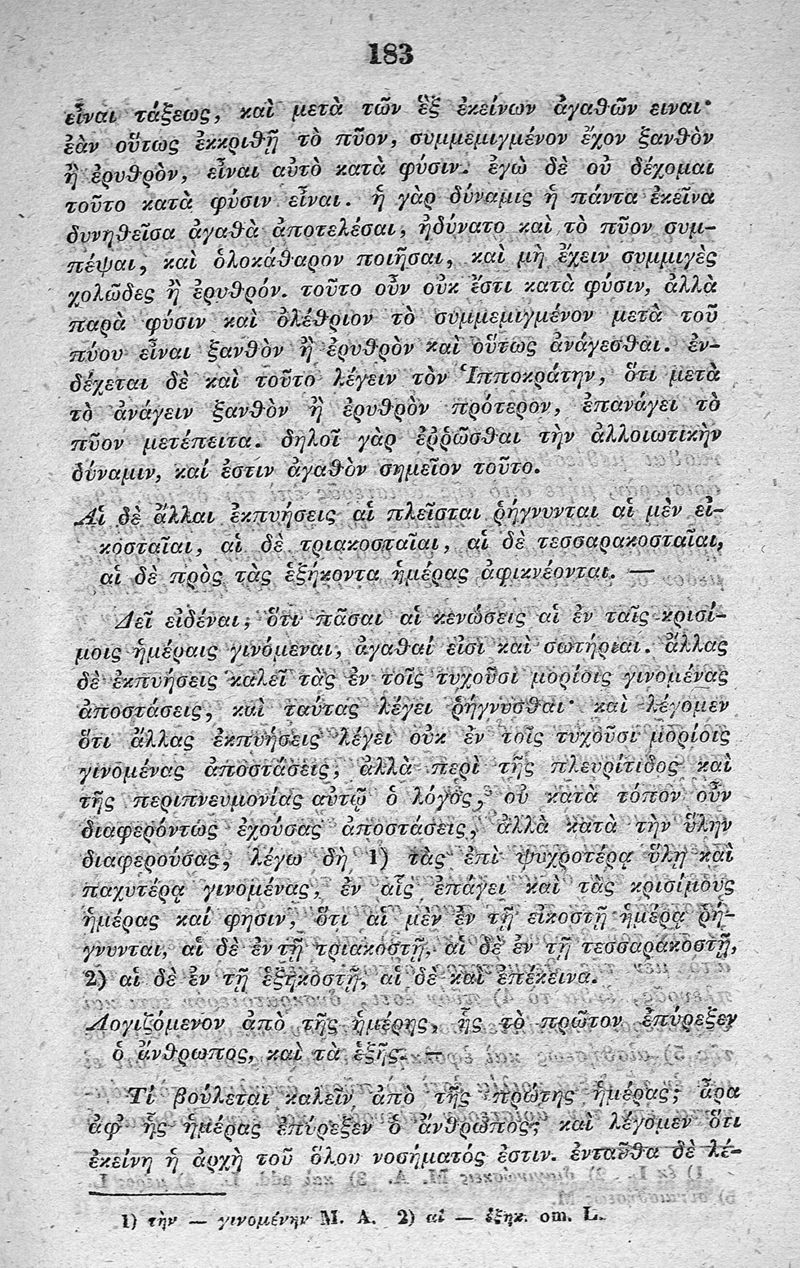 183
εἶναι τάξεως, καὶ μετὰ τῶν ἓξ ἐκείνων ἀγαθῶν ειναι·
ἐὰν οὕτως ἐκκριθῇ τὸ πῦον, συμμεμιγμένον ἔχον ξανθὸν
ἢ ἐρυθρὸν, εἶναι αὐτὸ κατὰ φύσιν. ἐγὼ δὲ οὐ δέχομαι
τοῦτο κατὰ φύσιν εἶναι. ἡ γὰρ δύναμις ἡ πάντα ἐκεῖνα
δυνηθεῖσα ἀγαθὰ ἀποτελέσαι, ἠδύνατο καὶ τὸ πῦον συμ-
πέψαι, καὶ ὁλοκάθαρον ποιῆσαι, καὶ μὴ ἔχειν συμμιγὲς
χολῶδες ἢ ἐρυθρόν. τοῦτο οὖν οὐκ ἔστι κατὰ φύσιν, ἀλλὰ
παρὰ φύσιν καὶ ὀλέθριον τὸ συμμεμιγμένον μετὰ τοῦ
πύου εἶναι ξανθὸν ἢ ἐρυθρὸν καὶ οὕτως ἀνάγεσθαι. ἐν-
δέχεται δὲ καὶ τοῦτο λέγειν τὸν Ἱπποκράτην, ὅτι μετὰ
τὸ ἀνάγειν ξανθὸν ἢ ἐρυθρὸν πρότερον, ἐπανάγει τὸ
πῦον μετέπειτα. δηλοῖ γὰρ ἐῤῥῶσθαι τὴν ἀλλοιωτικὴν
δύναμιν, καί ἐστιν ἀγαθὸν σημεῖον τοῦτο.
Αἱ δὲ ἄλλαι ἐκπυήσεις αἱ πλεῖσται ῥήγνυνται αἱ μὲν εἰ-
κοσταῖαι, αἱ δὲ τριακοσταῖαι, αἱ δὲ τεσσαρακοσταῖαι,
αἱ δὲ πρὸς τὰς ἑξήκοντα ἡμέρας ἀφικνέονται. —
Δεῖ εἰδέναι, ὅτι πᾶσαι αἱ κενώσεις αἱ ἐν ταῖς κρισί-
μοις ἡμέραις γινόμεναι, ἀγαθαί εἰσι καὶ σωτήριαι. ἄλλας
δὲ ἐκπυήσεις καλεῖ τὰς ἐν τοῖς τυχοῦσι μορίοις γινομένας
ἀποστάσεις, καὶ ταύτας λέγει ῥήγνυσθαι· καὶ λέγομεν
ὅτι ἄλλας ἐκπυήσεις λέγει οὐκ ἐν τοῖς τυχοῦσι μορίοις
γινομένας ἀποστάσεις, ἀλλὰ περὶ τῆς πλευρίτιδος καὶ
τῆς περιπνευμονίας αὐτῷ ὁ λόγος, οὐ κατὰ τόπον οὖν
διαφερόντως ἐχούσας ἀποστάσεις, ἀλλὰ κατὰ τὴν ὕλην
διαφερούσας, λέγω δὴ 1) τὰς ἐπὶ ψυχροτέρᾳ ὕλῃ καὶ
παχυτέρᾳ γινομένας, ἐν αἷς ἐπάγει καὶ τὰς κρισίμους
ἡμέρας καί φησιν, ὅτι αἱ μὲν ἐν τῇ εἰκοστῇ ἡμέρᾳ ῥή-
γνυνται, αἱ δὲ ἐν τῇ τριακοστῇ, αἱ δὲ ἐν τῇ τεσσαρακοστῇ,
2) αἱ δὲ ἐν τῇ ἑξηκοστῇ, αἱ δὲ καὶ ἐπέκεινα.
Λογιζόμενον ἀπὸ τῆς ἡμέρης, ἧς τὸ πρῶτον ἐπύρεξεν
ὁ ἄνθρωπος, καὶ τὰ ἑξῆς. —
Τί βούλεται καλεῖν ἀπὸ τῆς πρώτης ἡμέρας; ἆρα
ἀφ' ἧς ἡμέρας ἐπύρεξεν ὁ ἄνθρωπος; καὶ λέγομεν ὅτι
ἐκείνη ἡ ἀρχὴ τοῦ ὅλου νοσήματός ἐστιν. ἐνταῦθα δὲ λέ-
1) τὴν — γινομένην M. A. 2) αἱ — ἑξηκ. om. L.